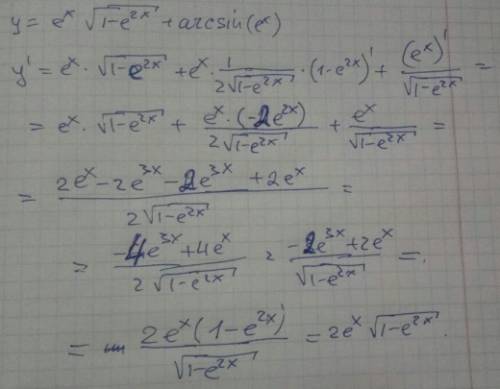 y = eˣ √(1-e²ˣ) + arcsin(eˣ)
y' = eˣ · √(1-e²ˣ) + eˣ · 1/(2√(1-e²ˣ)) · (1-e²ˣ)' + (eˣ)'/√(1-e²ˣ) =
= eˣ · √(1-e²ˣ) + eˣ · (-2e²ˣ)/(2√(1-e²ˣ)) + eˣ/√(1-e²ˣ) =
= (2eˣ - 2e³ˣ - 2e³ˣ + 2eˣ)/(2√(1-e²ˣ)) =
= (-4e³ˣ + 4eˣ)/(2√(1-e²ˣ)) = (-2e³ˣ + 2eˣ)/√(1-e²ˣ) =
= 2eˣ(1-e²ˣ)/√(1-e²ˣ) = 2eˣ √(1-e²ˣ).